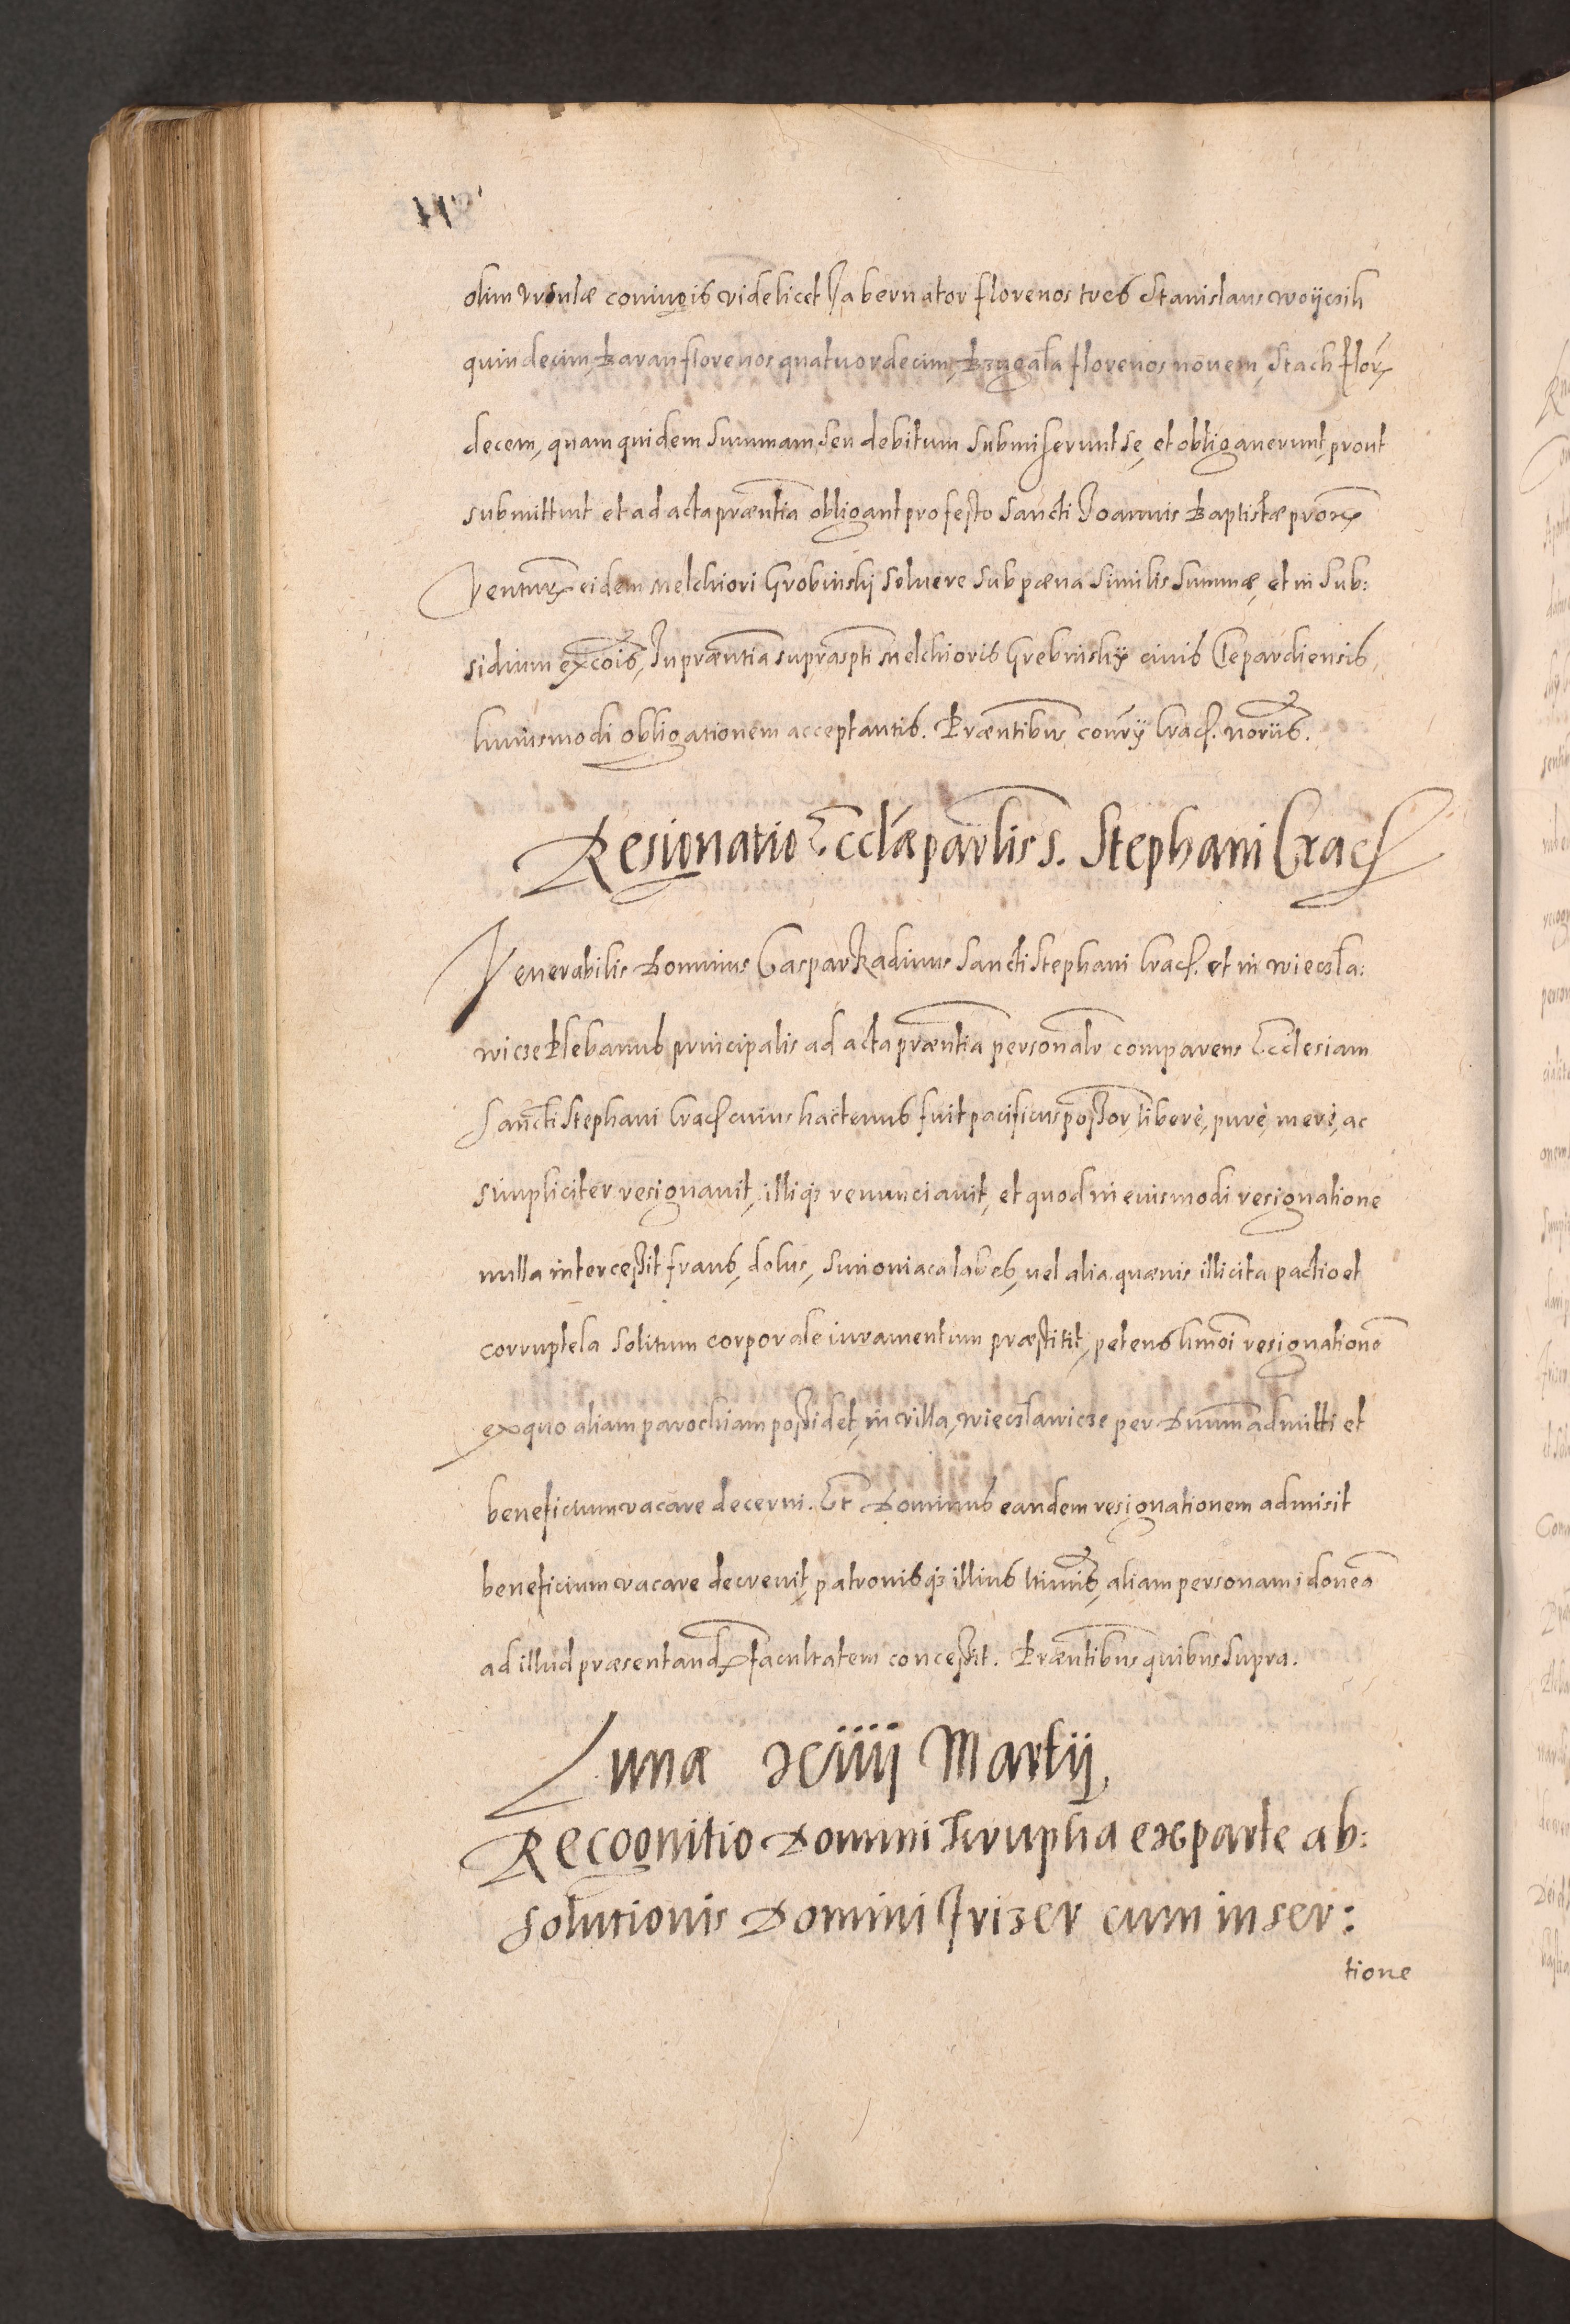 olim Vrsulæ coniugis videlicet Gabernator florenos tres Stanislaus woijcsik
quindecim, Baran florenos quatuordecim, Bzugała florenos nouem, Stach flor̃
decem, quam quidem summam, seu debitum submiserunt se, et obligauerunt, prout
submittunt et ad acta præntia obligant pro festo Sancti Joannis Baptistæ prox̃
Ventur̃ eidem Melchiori Grobinski soluere sub pæna similis summæ, et in sub:
sidium ex̃cois, In præntia suprasp̃ti Melchioris Grebinskij ciuis Clepardiensis,
huiusmodi obligationem acceptantis. Præntibus cons̃rij Crac̃. nor̃ijs.
Resignatio Eccl̃æ par̃lis S. Stephani Crac̃
Venerabilis Dominus Gaspar Radinus Sancti Stephani Crac̃. et in wiecsła:
wicze Plebanus principalis ad acta præntia personalr̃ comparens Ecclesiam
Sancti Stephani Crac̃ cuius hactenus fuit pacificus poßor, liberè, purè, merè, ac
simpliciter resignauit, illiq3 renunciauit, et quod in eiusmodi resignatione
nulla interceßit fraus, dolus, simoniaca labes, uel alia quæuis illicita pactio et
corruptela solitum corporale iuramentum præstitit, petens hm̃oi resignationẽ
ex quo aliam parochiam poßidet, in villa, wiecslawicze per Dnũm admitti et
beneficium vacare decerni. Et Dominus eandem resignationem admisit
beneficium vacare decreuit, patronisq3 illius ltimis, aliam personam idoneã
ad illud præsentand̃ facultatem conceßit. Præntibus quibus supra.
Lunæ xiiij Martij,
Recognitio Domini Krupka ex parte ab:
solutionis Domini Frizer cum inser:
tione